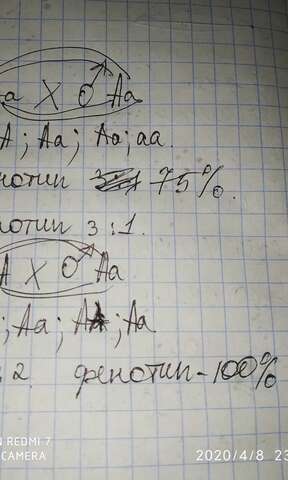 a X ♂ Aa
A; Aa; Aa; aa.
нотип 75%.
отип 3:1.
A X ♂ Aa
; Aa; AA; Aa
2. фенотип - 100%
N REDMI 7
CAMERA
2020/4/8